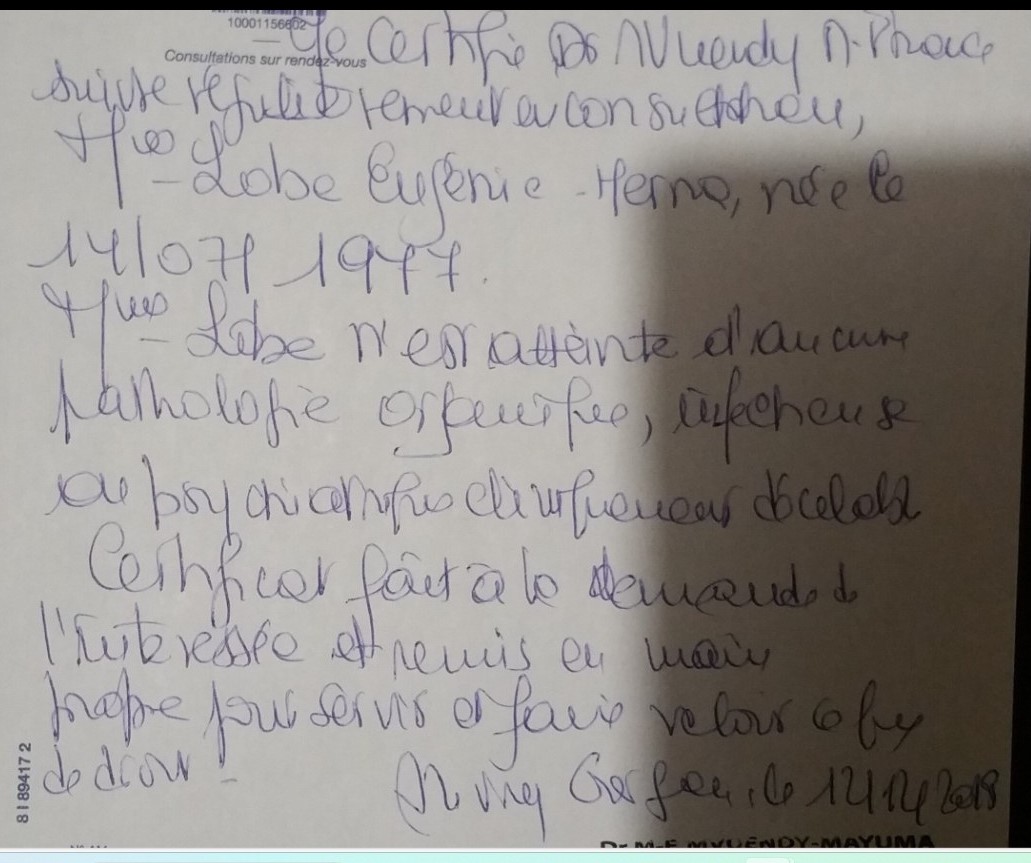 10001156602
Consultations sur rendez-vous
Je Certifie Dr
suivre régulièrement en consultation,
Mme Lobe Eugénie, née le
14/07/1977.
Mme Lobe n'est atteinte d'aucune
pathologie organique, infectieuse
ou psychiatrique cliniquement décelable
Certificat fait à la demande de
l'intéressée et remis en main
propre pour servir et faire valoir ce
de droit
le 12/12/2018
Dr M-F MVUENDY-MAYUMA
8189417 2